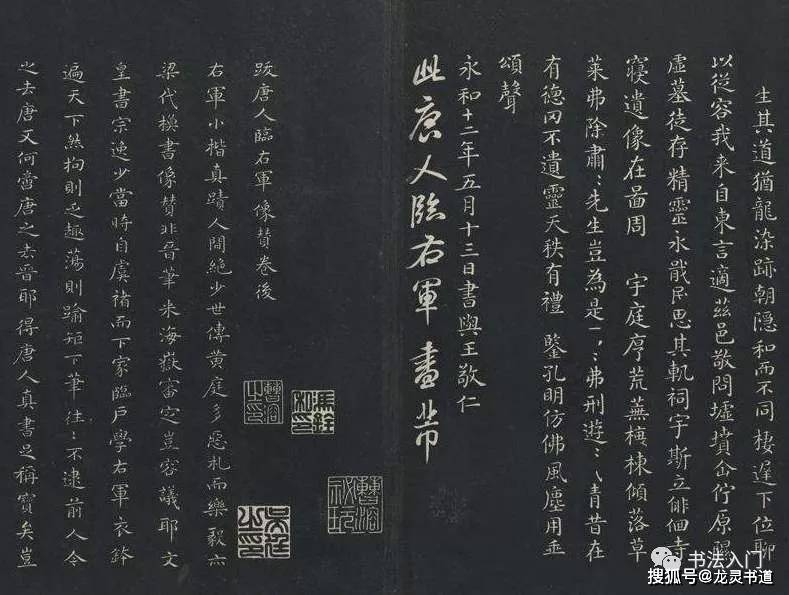 生其道猶龍染跡朝隱和而不同棲遲下位聊
以從容我来自東言適茲邑敬問墟墳企佇原隰
虛墓徒存精靈永戢民思其軌祠宇斯立俳佪寺
寢遺像在啚周 宇庭序荒蕪榱棟傾落草
萊弗除肅〻先生豈為是〻弗刑遊〻青昔在
有德罔不遺靈天秩有禮 鑒孔明仿佛風塵用垂
頌聲
永和十二年五月十三日書與王敬仁
此唐人臨右軍畫帋
跋唐人臨右軍像贊卷後
右軍小楷真蹟人間絕少世傳黄庭多惡札而樂毅亦
梁代模書像贊非晉筆米海嶽審定豈容議耶文
皇書宗逸少當時自虞褚而下家臨戶學右軍衣鉢
遍天下然拘則乏趣蕩則踰矩下筆往〻不逮前人今
之去唐又何啻唐之去晉耶得唐人真書足稱寶矣豈
曹溶之印
馮銓私印
曹溶秘玩
吳廷之印
书法入门
搜狐号@龙灵书道